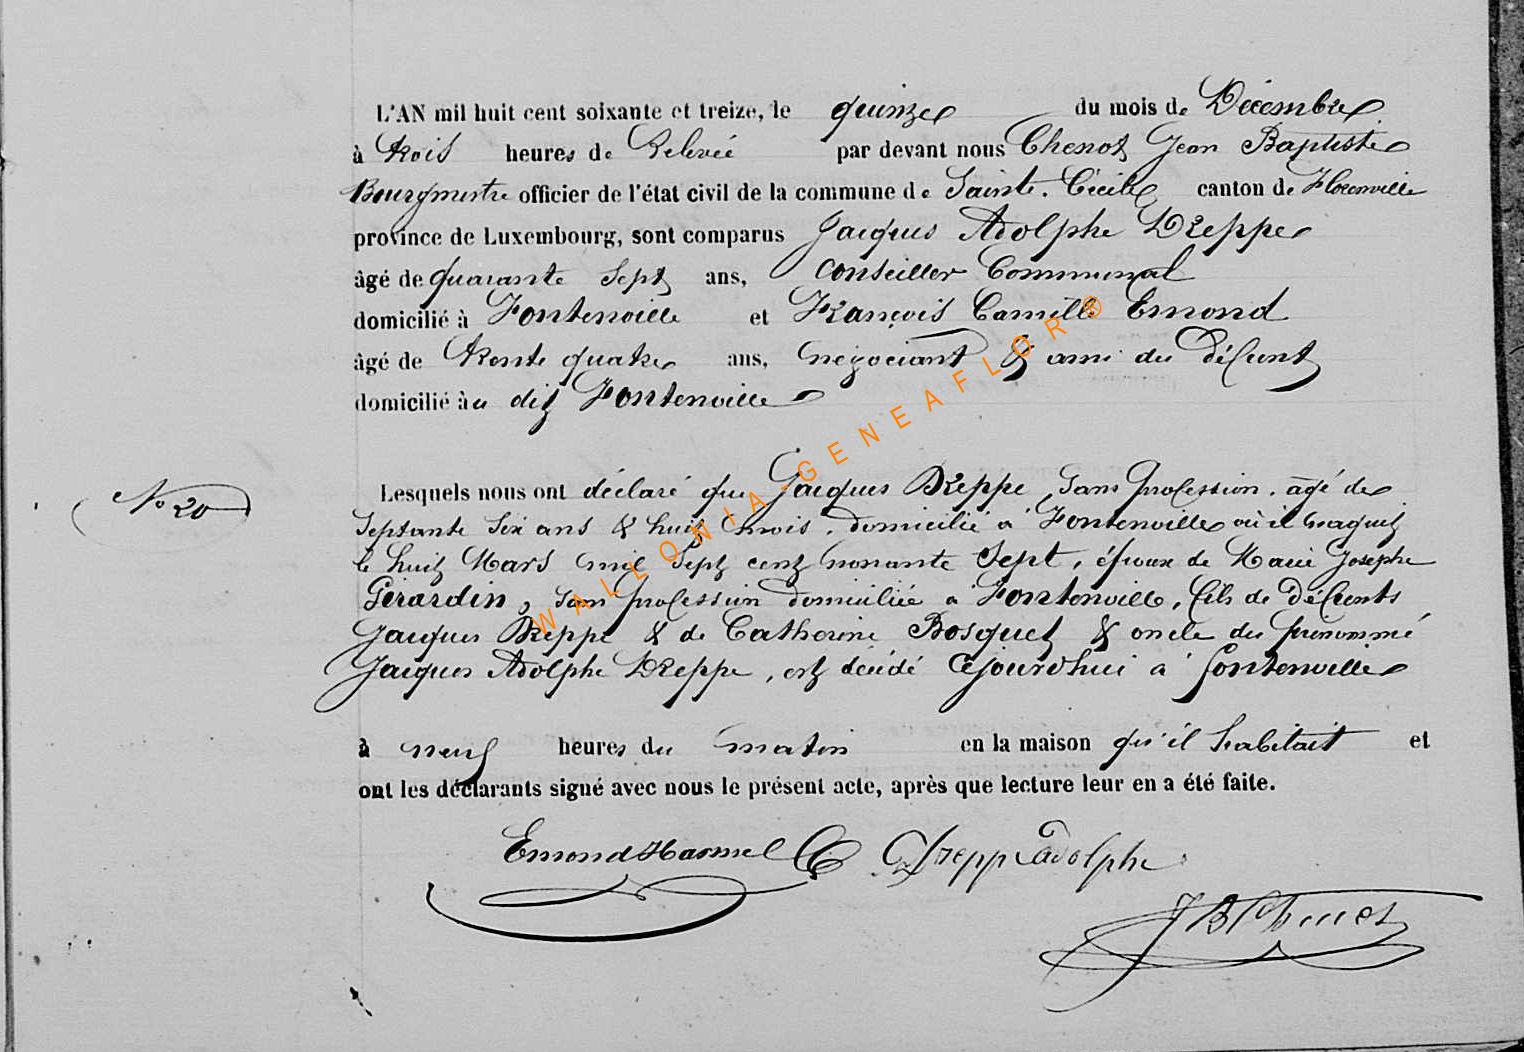 L'AN mil huit cent soixante et treize, le quinze du mois de Décembre
à trois heures de Relevée par devant nous Chenot Jean Baptiste
Bourgmestre officier de l'état civil de la commune de Sainte-Cécile canton de Florenville
province de Luxembourg, sont comparus Jacques Adolphe Dreppe
âgé de quarante sept ans, conseiller Communal
domicilié à Fontenoille et François Camille Emond
âgé de trente quatre ans, négociant & ami du Défunt
domicilié au dit Fontenoille
No 20
Lesquels nous ont déclaré que Jacques Dreppe, sans profession, âgé de
septante six ans & huit mois, domicilié à Fontenoille où il naquit
le huit Mars mil sept cent nonante sept, époux de Marie Josephe
Gérardin, sans profession domiciliée à Fontenoille, fils de Défunts
Jacques Dreppe & de Catherine Bosquet & oncle du prénommé
Jacques Adolphe Dreppe, est décédé cejourd'hui à fontenoille
à neuf heures du matin en la maison qu'il habitait et
ont les déclarants signé avec nous le présent acte, après que lecture leur en a été faite.
Emond Harmel C Dreppe adolphe
J B Chenot
WALLONIA-GENEAFLOR®